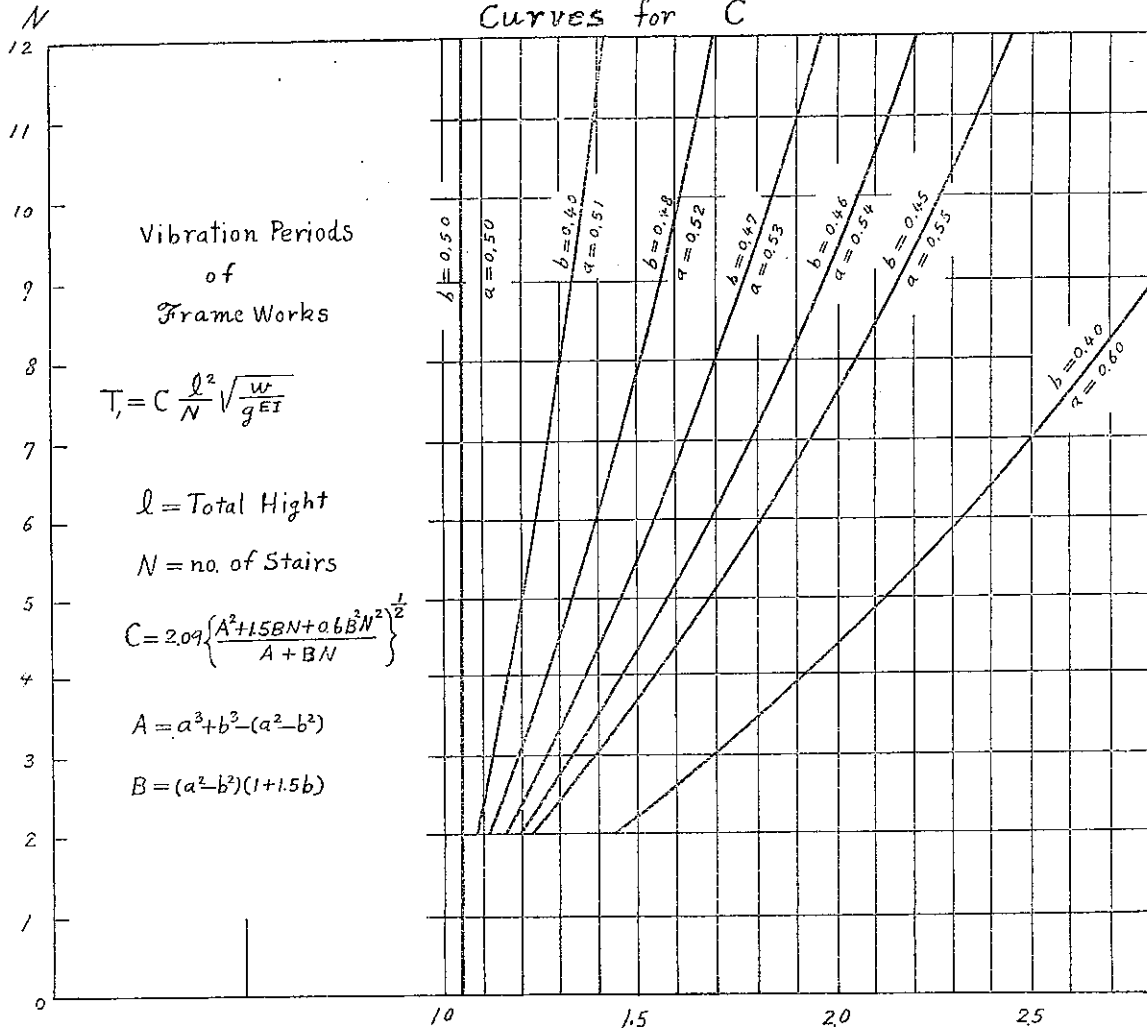 Curves for C
N
12
11
10
9
8
7
6
5
4
3
2
1
0
Vibration Periods
of
Frame Works
T₁ = C l²/N √(w/gEI)
l = Total Hight
N = no. of Stairs
C = 2.09{(A²+1.5BN+0.6B²N²)/(A+BN)}^½
A = a³+b³–(a²–b²)
B = (a²–b²)(1+1.5b)
b = 0,50
a = 0,50
b = 0,40
a = 0,51
b = 0,48
a = 0,52
b = 0,47
a = 0,53
b = 0,46
a = 0,54
b = 0,45
a = 0,55
b = 0.40
a = 0.60
10
1.5
2.0
2.5